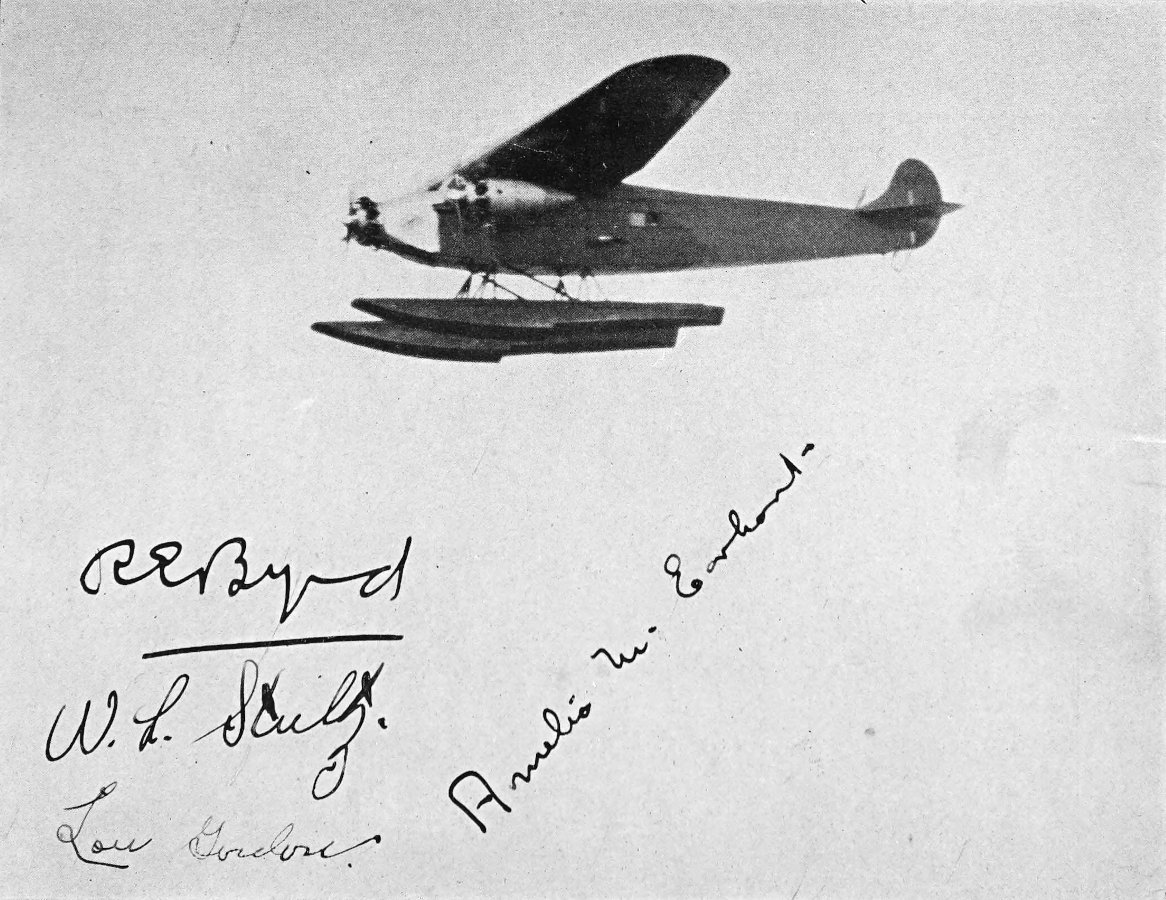 R E Byrd
W. L. Stultz.
Lou Gordon.
Amelia M. Earhart-